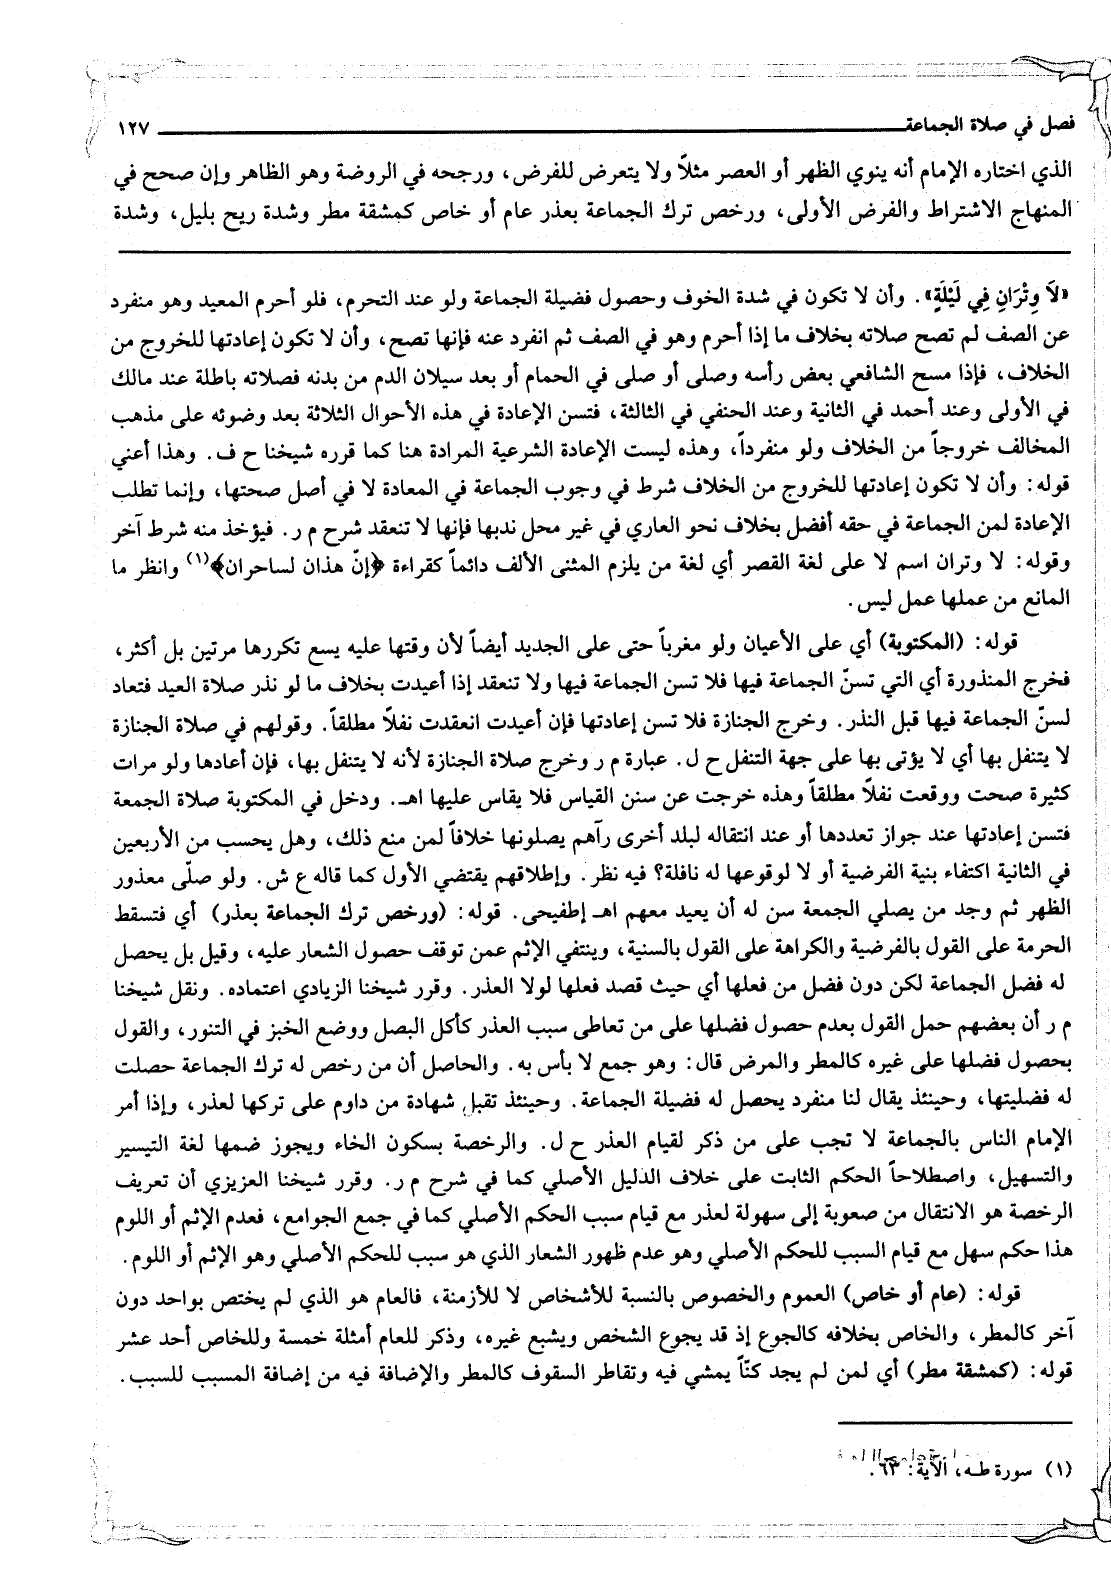 فصل في صلاة الجماعة ١٢٧
الذي اختاره الإمام أنه ينوي الظهر أو العصر مثلاً ولا يتعرض للفرض، ورجحه في الروضة وهو الظاهر وإن صحح في
المنهاج الاشتراط والفرض الأولى، ورخص ترك الجماعة بعذر عام أو خاص كمشقة مطر وشدة ريح بليل، وشدة
«لَا وِتْرَانِ فِي لَيْلَةٍ». وأن لا تكون في شدة الخوف وحصول فضيلة الجماعة ولو عند التحرم، فلو أحرم المعيد وهو منفرد
عن الصف لم تصح صلاته بخلاف ما إذا أحرم وهو في الصف ثم انفرد عنه فإنها تصح، وأن لا تكون إعادتها للخروج من
الخلاف، فإذا مسح الشافعي بعض رأسه وصلى أو صلى في الحمام أو بعد سيلان الدم من بدنه فصلاته باطلة عند مالك
في الأولى وعند أحمد في الثانية وعند الحنفي في الثالثة، فتسن الإعادة في هذه الأحوال الثلاثة بعد وضوئه على مذهب
المخالف خروجاً من الخلاف ولو منفرداً، وهذه ليست الإعادة الشرعية المرادة هنا كما قرره شيخنا ح ف. وهذا أعني
قوله: وأن لا تكون إعادتها للخروج من الخلاف شرط في وجوب الجماعة في المعادة لا في أصل صحتها، وإنما تطلب
الإعادة لمن الجماعة في حقه أفضل بخلاف نحو العاري في غير محل ندبها فإنها لا تنعقد شرح م ر. فيؤخذ منه شرط آخر
وقوله: لا وتران اسم لا على لغة القصر أي لغة من يلزم المثنى الألف دائماً كقراءة ﴿إنّ هذان لساحران﴾(١) وانظر ما
المانع من عملها عمل ليس.
قوله: (المكتوبة) أي على الأعيان ولو مغرباً حتى على الجديد أيضاً لأن وقتها عليه يسع تكررها مرتين بل أكثر،
فخرج المنذورة أي التي تسنّ الجماعة فيها فلا تسن الجماعة فيها ولا تنعقد إذا أعيدت بخلاف ما لو نذر صلاة العيد فتعاد
لسنّ الجماعة فيها قبل النذر. وخرج الجنازة فلا تسن إعادتها فإن أعيدت انعقدت نفلاً مطلقاً. وقولهم في صلاة الجنازة
لا يتنفل بها أي لا يؤتى بها على جهة التنفل ح ل. عبارة م ر وخرج صلاة الجنازة لأنه لا يتنفل بها، فإن أعادها ولو مرات
كثيرة صحت ووقعت نفلاً مطلقاً وهذه خرجت عن سنن القياس فلا يقاس عليها اهـ. ودخل في المكتوبة صلاة الجمعة
فتسن إعادتها عند جواز تعددها أو عند انتقاله لبلد أخرى رآهم يصلونها خلافاً لمن منع ذلك، وهل يحسب من الأربعين
في الثانية اكتفاء بنية الفرضية أو لا لوقوعها له نافلة؟ فيه نظر. وإطلاقهم يقتضي الأول كما قاله ع ش. ولو صلّى معذور
الظهر ثم وجد من يصلي الجمعة سن له أن يعيد معهم اهـ إطفيحى. قوله: (ورخص ترك الجماعة بعذر) أي فتسقط
الحرمة على القول بالفرضية والكراهة على القول بالسنية، وينتفي الإثم عمن توقف حصول الشعار عليه، وقيل بل يحصل
له فضل الجماعة لكن دون فضل من فعلها أي حيث قصد فعلها لولا العذر. وقرر شيخنا الزيادي اعتماده. ونقل شيخنا
م ر أن بعضهم حمل القول بعدم حصول فضلها على من تعاطى سبب العذر كأكل البصل ووضع الخبز في التنور، والقول
بحصول فضلها على غيره كالمطر والمرض قال: وهو جمع لا بأس به. والحاصل أن من رخص له ترك الجماعة حصلت
له فضليتها، وحينئذ يقال لنا منفرد يحصل له فضيلة الجماعة. وحينئذ تقبل شهادة من داوم على تركها لعذر، وإذا أمر
الإمام الناس بالجماعة لا تجب على من ذكر لقيام العذر ح ل. والرخصة بسكون الخاء ويجوز ضمها لغة التيسير
والتسهيل، واصطلاحاً الحكم الثابت على خلاف الدليل الأصلي كما في شرح م ر. وقرر شيخنا العزيزي أن تعريف
الرخصة هو الانتقال من صعوبة إلى سهولة لعذر مع قيام سبب الحكم الأصلي كما في جمع الجوامع، فعدم الإثم أو اللوم
هذا حكم سهل مع قيام السبب للحكم الأصلي وهو عدم ظهور الشعار الذي هو سبب للحكم الأصلي وهو الإثم أو اللوم.
قوله: (عام أو خاص) العموم والخصوص بالنسبة للأشخاص لا للأزمنة، فالعام هو الذي لم يختص بواحد دون
آخر كالمطر، والخاص بخلافه كالجوع إذ قد يجوع الشخص ويشبع غيره، وذكر للعام أمثلة خمسة وللخاص أحد عشر
قوله: (كمشقة مطر) أي لمن لم يجد كنّاً يمشي فيه وتقاطر السقوف كالمطر والإضافة فيه من إضافة المسبب للسبب.
(١) سورة طـه، الآية: ٦٣.